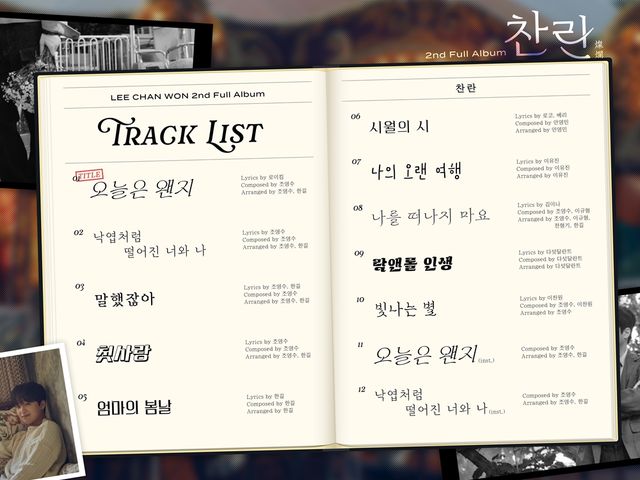 찬란
燦爛
2nd Full Album
LEE CHAN WON 2nd Full Album
TRACK LIST
01
TITLE
오늘은 왠지
Lyrics by 로이킴
Composed by 조영수
Arranged by 조영수, 한길
02
낙엽처럼
떨어진 너와 나
Lyrics by 조영수
Composed by 조영수
Arranged by 조영수, 한길
03
말했잖아
Lyrics by 조영수, 한길
Composed by 조영수, 한길
Arranged by 조영수, 한길
04
첫사랑
Lyrics by 조영수
Composed by 조영수
Arranged by 조영수, 한길
05
엄마의 봄날
Lyrics by 한길
Composed by 한길
Arranged by 한길
찬란
06
시월의 시
Lyrics by 로코, 베리
Composed by 안영민
Arranged by 안영민
07
나의 오랜 여행
Lyrics by 이유진
Composed by 이유진
Arranged by 이유진
08
나를 떠나지 마요
Lyrics by 김이나
Composed by 조영수, 이규형
Arranged by 조영수, 이규형,
전형기, 한길
09
락앤롤 인생
Lyrics by 다섯달란트
Composed by 다섯달란트
Arranged by 다섯달란트
10
빛나는 별
Lyrics by 이찬원
Composed by 조영수, 이찬원
Arranged by 조영수
11
오늘은 왠지 (inst.)
Composed by 조영수
Arranged by 조영수, 한길
12
낙엽처럼
떨어진 너와 나 (inst.)
Composed by 조영수
Arranged by 조영수, 한길